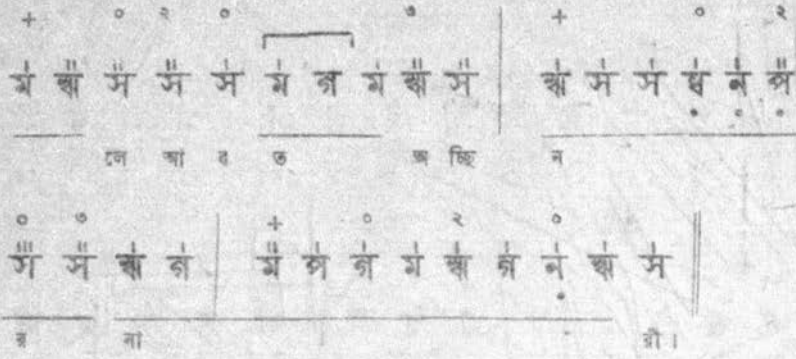 + ০ ২ ০ ৩ + ০ ২
ম ঋ স স স ম গ ম ঋ স | ঋ স স ধ ন প
নে আ ব ত অ চ্ছি ন
০ ৩ + ০ ২ ০
স স ঋ গ | ম প গ ম ঋ গ ন ঋ স ||
না রী।